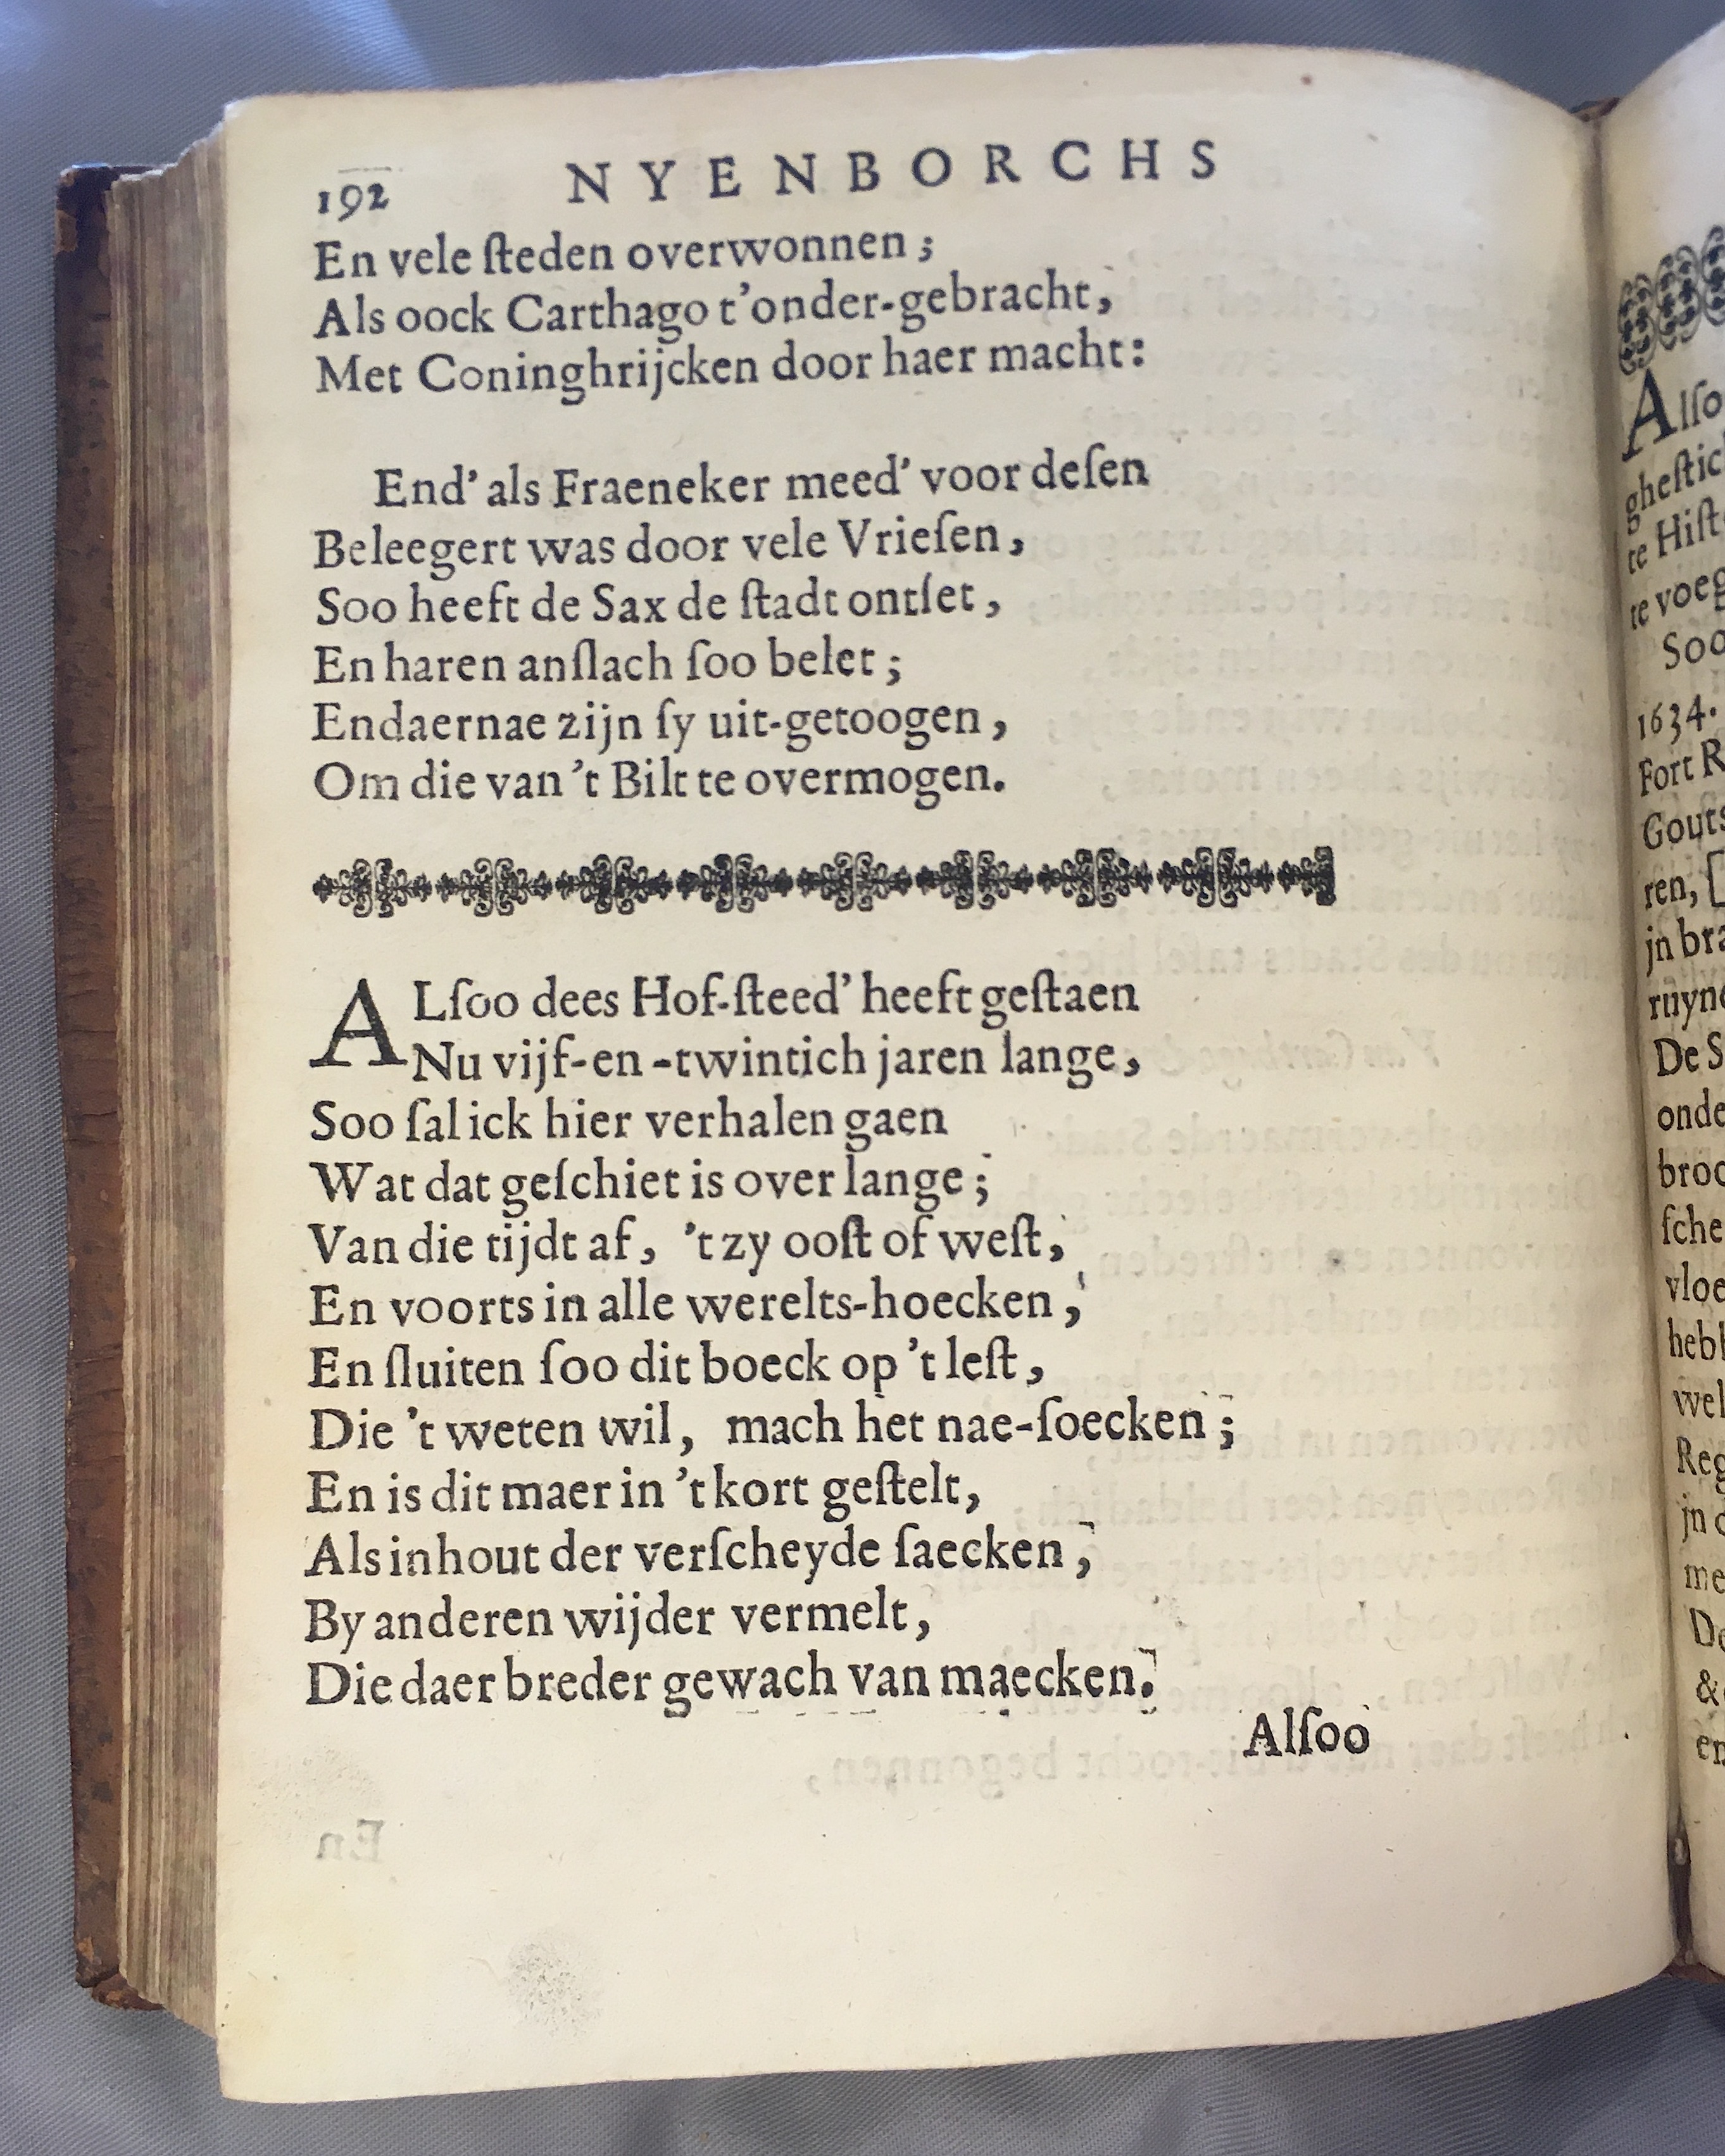 192 NYENBORCHS
En vele ſteden overwonnen;
Als oock Carthago t'onder-gebracht,
Met Coninghrijcken door haer macht:
End' als Fraeneker meed' voor deſen
Beleegert was door vele Vrieſen,
Soo heeft de Sax de ſtadt ontſet,
En haren anſlach ſoo belet;
Endaernae zijn ſy uit-getoogen,
Om die van 't Bilt te overmogen.
ALſoo dees Hof-ſteed' heeft geſtaen
Nu vijf-en-twintich jaren lange,
Soo ſal ick hier verhalen gaen
Wat dat geſchiet is over lange;
Van die tijdt af, 't zy ooſt of weſt,
En voorts in alle werelts-hoecken,
En ſluiten ſoo dit boeck op 't leſt,
Die 't weten wil, mach het nae-ſoecken;
En is dit maer in 't kort geſtelt,
Als inhout der verſcheyde ſaecken,
By anderen wijder vermelt,
Die daer breder gewach van maecken.
Alſoo
Alſo
gheſtic
te Hiſt
te voeg
Soo
1634.
Fort R
Gouts
ren, [
jn bra
ruyn
De S
onde
broc
ſche
vloe
hebb
wel
Reg
jn
me
De
&
en